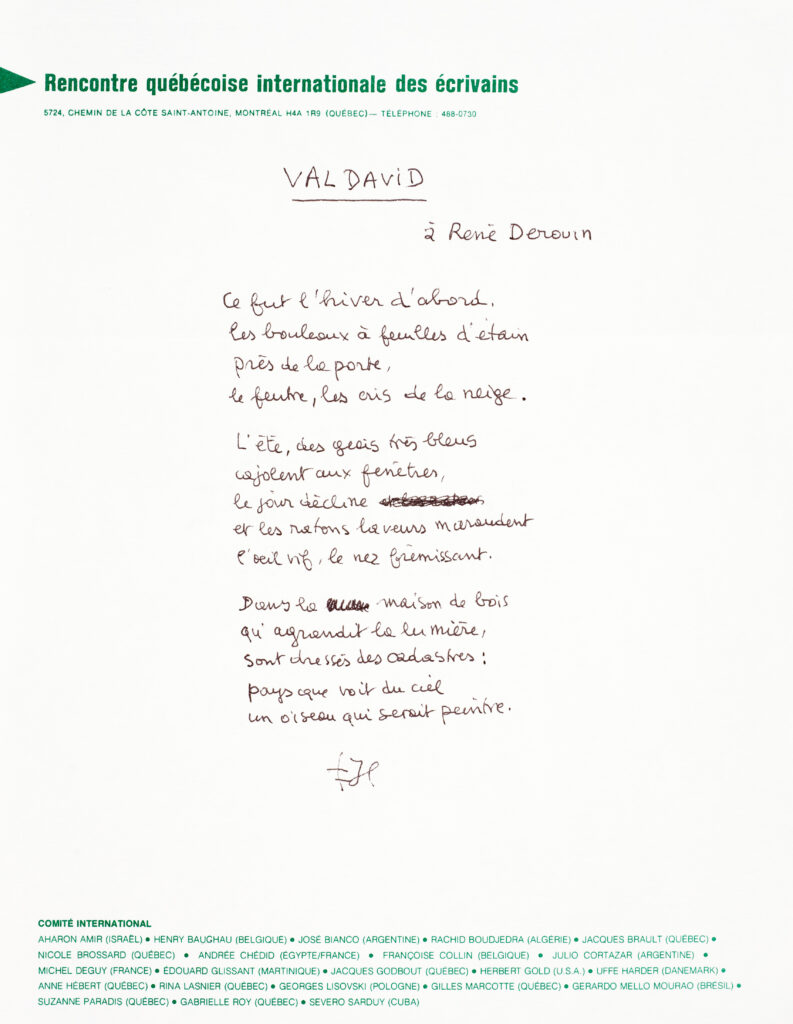 Rencontre québécoise internationale des écrivains
5724, CHEMIN DE LA CÔTE SAINT-ANTOINE, MONTRÉAL H4A 1R9 (QUÉBEC) — TÉLÉPHONE : 488-0730
VAL DAVID
à René Derouin
Ce fut l'hiver d'abord.
les bouleaux à feuilles d'étain
près de la porte,
le feutre, les cris de la neige.
L'été, des geais très bleus
cajolent aux fenêtres,
le jour décline
et les ratons laveurs maraudent
l'oeil vif, le nez frémissant.
Dans la maison de bois
qu'agrandit la lumière,
sont dressés des cadastres :
pays que voit du ciel
un oiseau qui serait peintre.
COMITÉ INTERNATIONAL
AHARON AMIR (ISRAËL) ● HENRY BAUGHAU (BELGIQUE) ● JOSÉ BIANCO (ARGENTINE) ● RACHID BOUDJEDRA (ALGÉRIE) ● JACQUES BRAULT (QUÉBEC) ●
NICOLE BROSSARD (QUÉBEC) ● ANDRÉE CHÉDID (ÉGYPTE/FRANCE) ● FRANÇOISE COLLIN (BELGIQUE) ● JULIO CORTAZAR (ARGENTINE) ●
MICHEL DEGUY (FRANCE) ● ÉDOUARD GLISSANT (MARTINIQUE) ● JACQUES GODBOUT (QUÉBEC) ● HERBERT GOLD (U.S.A.) ● UFFE HARDER (DANEMARK) ●
ANNE HÉBERT (QUÉBEC) ● RINA LASNIER (QUÉBEC) ● GEORGES LISOVSKI (POLOGNE) ● GILLES MARCOTTE (QUÉBEC) ● GERARDO MELLO MOURAO (BRÉSIL) ●
SUZANNE PARADIS (QUÉBEC) ● GABRIELLE ROY (QUÉBEC) ● SEVERO SARDUY (CUBA)